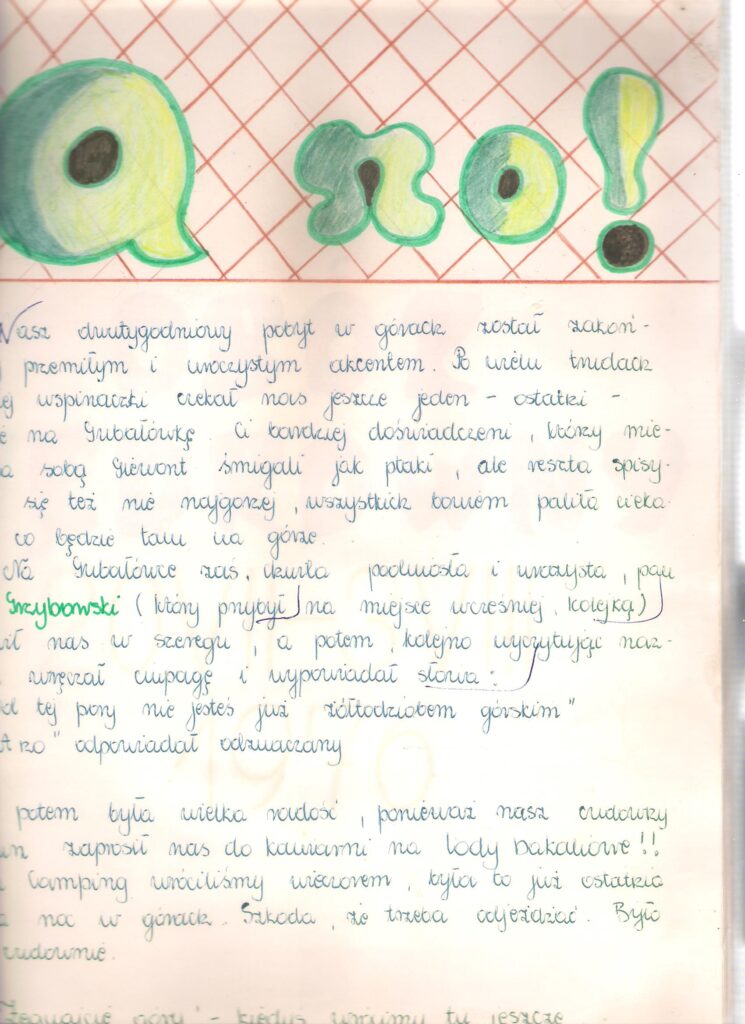 A no!
Nasz dwutygodniowy pobyt w górach został zakoń-
przemiłym i uroczystym akcentem. Po wielu trudach
ej wspinaczki czekał nas jeszcze jeden - ostatki -
e na Gubałówkę. Ci bardziej doświadczeni, którzy mie-
a sobą Giewont śmigali jak ptaki, ale reszta spisy-
się też nie najgorzej, wszystkich bowiem paliła cieka-
co będzie tam na górze.
Na Gubałówce zaś, chwila podniosła i uroczysta, pan
Grzybowski (który przybył na miejsce wcześniej kolejką)
ił nas w szeregu, a potem kolejno wyczytując naz-
wręczał ciupagę i wypowiadał słowa:
d tej pory nie jesteś już żółtodziobem górskim"
A no" odpowiadał odznaczany
potem była wielka radość, ponieważ nasz cudowny
an zaprosił nas do kawiarni na lody bakaliowe!!
Camping wróciliśmy wieczorem, była to już ostatnia
a noc w górach. Szkoda, że trzeba odjeżdżać. Było
cudownie.
Żegnajcie góry - kiedyś wrócimy tu jeszcze